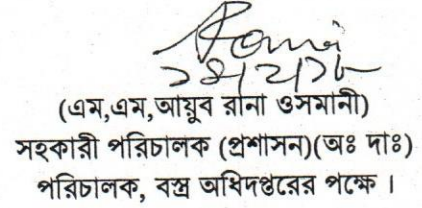 (এম,এম,আয়ুব রানা ওসমানী)
সহকারী পরিচালক (প্রশাসন)(অঃ দাঃ)
পরিচালক, বস্ত্র অধিদপ্তরের পক্ষে ।